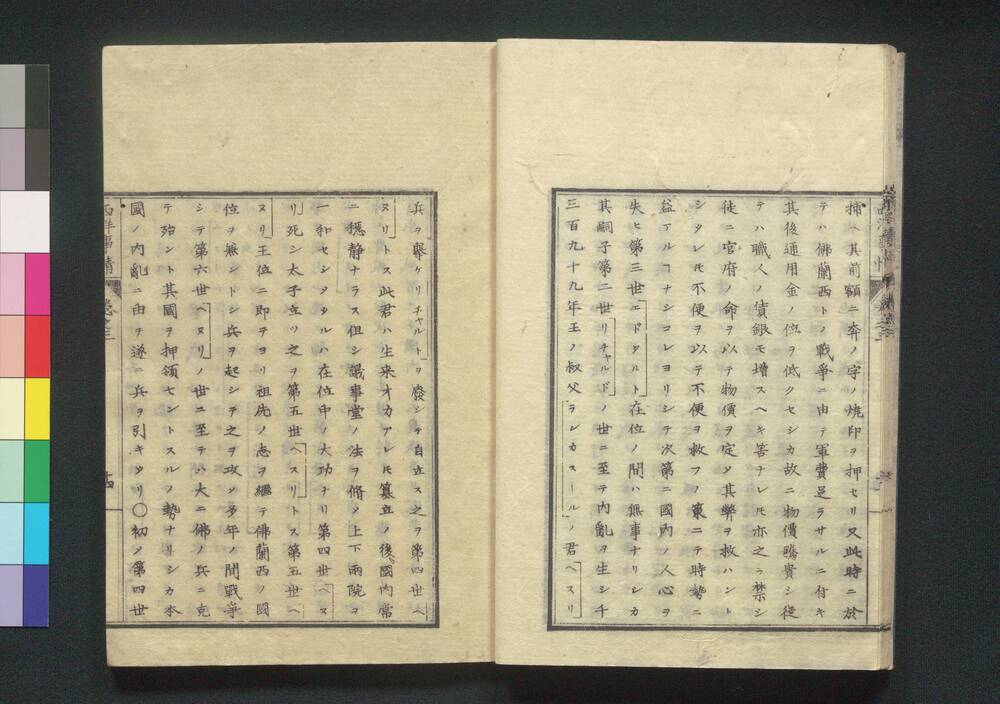 捕ヘ其前額ニ奔ノ字ノ燒印ヲ押セリ又此時ニ於
テハ佛蘭西トノ戰爭ニ由テ軍費足ラサルニ付キ
其後通用金ノ位ヲ低クセシカ故ニ物價騰貴シ從
テハ職人ノ賃銀モ增スヘキ筈ナレモ亦之ヲ禁シ
徒ニ官府ノ命ヲ以テ物價ヲ定メ其弊ヲ救ハント
シタレモ不便ヲ以テ不便ヲ救フノ策ニテ時勢ニ
益アルヿナシコレヨリシテ次第ニ國內ノ人心ヲ
失ヒ第三世エドワルト在位ノ間ハ無事ナリシカ
其嗣子第二世リチャルドノ世ニ至テ內亂ヲ生シ千
三百九十九年王ノ叔父ランカスートルノ君ヘヌリ
兵ヲ擧ケリチャルトヲ廢シテ自立ス之ヲ第四世ヘ
ヌリトス此君ハ生來才カアレモ簒立ノ後國內常
ニ穩靜ナラス但シ議事堂ノ法ヲ脩メ上下兩院ヲ
一和セシメタルハ在位中ノ大功ナリ第四世ヘヌ
リ死シ太子立ツ之ヲ第五世ヘヌリトス第五世ヘ
ヌリ王位ニ即テヨリ祖先ノ志ヲ繼テ佛蘭西ノ國
位ヲ無シトシ兵ヲ起シテ之ヲ攻メ多年ノ間戰爭
シテ第六世ヘヌリノ世ニ至テハ大ニ佛ノ兵ニ克
テ殆ント其國ヲ押領セントスルノ勢ナリシカ本
國ノ內亂ニ由ヲ遂ニ兵ヲ引キタリ〇初メ第四世
西洋事情
十四